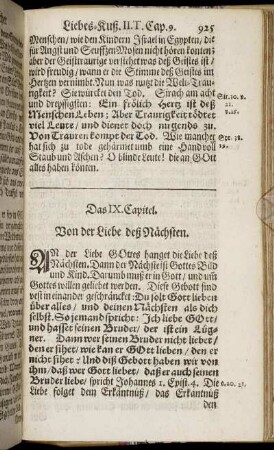 Liebes-Kuß. II.T. Cap. 9. 925
Menschen/ wie den Kindern Israel in Egypten/ die
für Angst und Seufftzen Mosen nicht hören konten:
aber der Geisttraurige verstehet was deß Geistes ist/
wird freudig/ wann er die Stimme deß Geistes im
Hertzen vernimbt. Nun was nutzt die Welt-Trau-
rigkeit? Sie würcket den Tod. Sirach am acht
und dreyssigsten: Ein frölich Hertz ist deß
Menschen Leben; Aber Traurigkeit tödtet
viel Leute/ und dienet doch nirgends zu.
Von Trauren kompt der Tod. Wie mancher
hat sich zu tode gehärmet umb eine Hand voll
Staub und Aschen? O blinde Leute! die an GOtt
alles haben könten.
Sir. 30. 8.
Das IX. Capitel.
Von der Liebe deß Nächsten.
AN der Liebe GOttes hanget die Liebe deß
Nächsten. Dann der Nächste ist Gottes Bild
und Kind. Darumb muß er in Gott/ und umb
Gottes willen geliebet werden. Diese Gebott sind
vest in einander geschräncket: Du solt Gott lieben
über alles/ und deinen Nächsten als dich
selbst. So jemand spricht: Ich liebe GOtt/
und hasset seinen Bruder/ der ist ein Lüg-
ner. Dann wer seinen Bruder nicht liebet/
den er sihet/ wie kan er GOtt lieben/ den er
nicht sihet? Und diß Gebott haben wir von
ihm/ daß wer Gott liebet/ daß er auch seinen
Bruder liebe/ spricht Johannes 1. Epist. 4. Die
Liebe folget dem Erkäntnuß/ das Erkäntnuß
v. 20. 21.
den